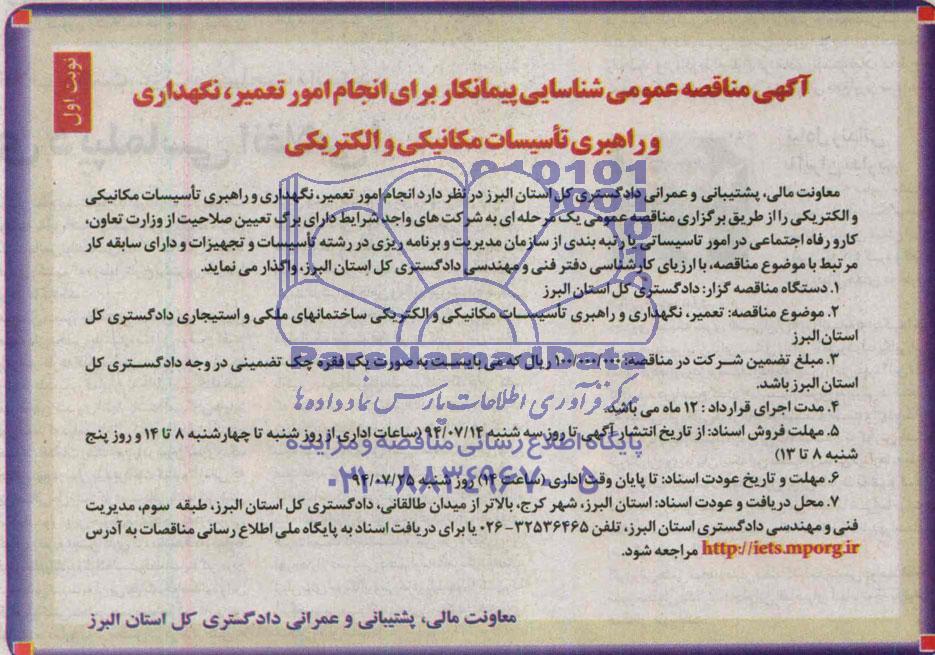 نوبت اول
آگهی مناقصه عمومی شناسایی پیمانکار برای انجام امور تعمیر، نگهداری
و راهبری تأسیسات مکانیکی و الکتریکی
معاونت مالی، پشتیبانی و عمرانی دادگستری کل استان البرز در نظر دارد انجام امور تعمیر، نگهداری و راهبری تأسیسات مکانیکی
و الکتریکی را از طریق برگزاری مناقصه عمومی یک مرحله ای به شرکت های واجد شرایط دارای برگ تعیین صلاحیت از وزارت تعاون،
کار و رفاه اجتماعی در امور تاسیساتی یا رتبه بندی از سازمان مدیریت و برنامه ریزی در رشته تأسیسات و تجهیزات و دارای سابقه کار
مرتبط با موضوع مناقصه، با ارزیای کارشناسی دفتر فنی و مهندسی دادگستری کل استان البرز، واگذار می نماید.
۱. دستگاه مناقصه گزار: دادگستری کل استان البرز
۲. موضوع مناقصه: تعمیر، نگهداری و راهبری تأسیسات مکانیکی و الکتریکی ساختمانهای ملکی و استیجاری دادگستری کل
استان البرز
۳. مبلغ تضمین شرکت در مناقصه: ۱۰۰/۰۰۰/۰۰۰ ریال که می بایست به صورت یک فقره چک تضمینی در وجه دادگستری کل
استان البرز باشد.
۴. مدت اجرای قرارداد : ۱۲ ماه می باشد.
۵. مهلت فروش اسناد: از تاریخ انتشار آگهی تا روز سه شنبه ۹۴/۰۷/۱۴ (ساعات اداری از روز شنبه تا چهارشنبه ۸ تا ۱۴ و روز پنج
شنبه ۸ تا ۱۳)
۶. مهلت و تاریخ عودت اسناد: تا پایان وقت اداری (ساعت ۱۴) روز شنبه ۹۴/۰۷/۲۵
۷. محل دریافت و عودت اسناد: استان البرز، شهر کرج، بالاتر از میدان طالقانی، دادگستری کل استان البرز، طبقه سوم، مدیریت
فنی و مهندسی دادگستری استان البرز، تلفن ۳۲۵۳۶۴۶۵-۰۲۶ یا برای دریافت اسناد به پایگاه ملی اطلاع رسانی مناقصات به آدرس
http://iets.mporg.ir مراجعه شود.
معاونت مالی، پشتیبانی و عمرانی دادگستری کل استان البرز
ParsNamadData
مرکز فرآوری اطلاعات پارس نماد داده ها
پایگاه اطلاع رسانی مناقصه و مزایده
۰۲۱-۸۸۳۴۹۶۷۰-۵